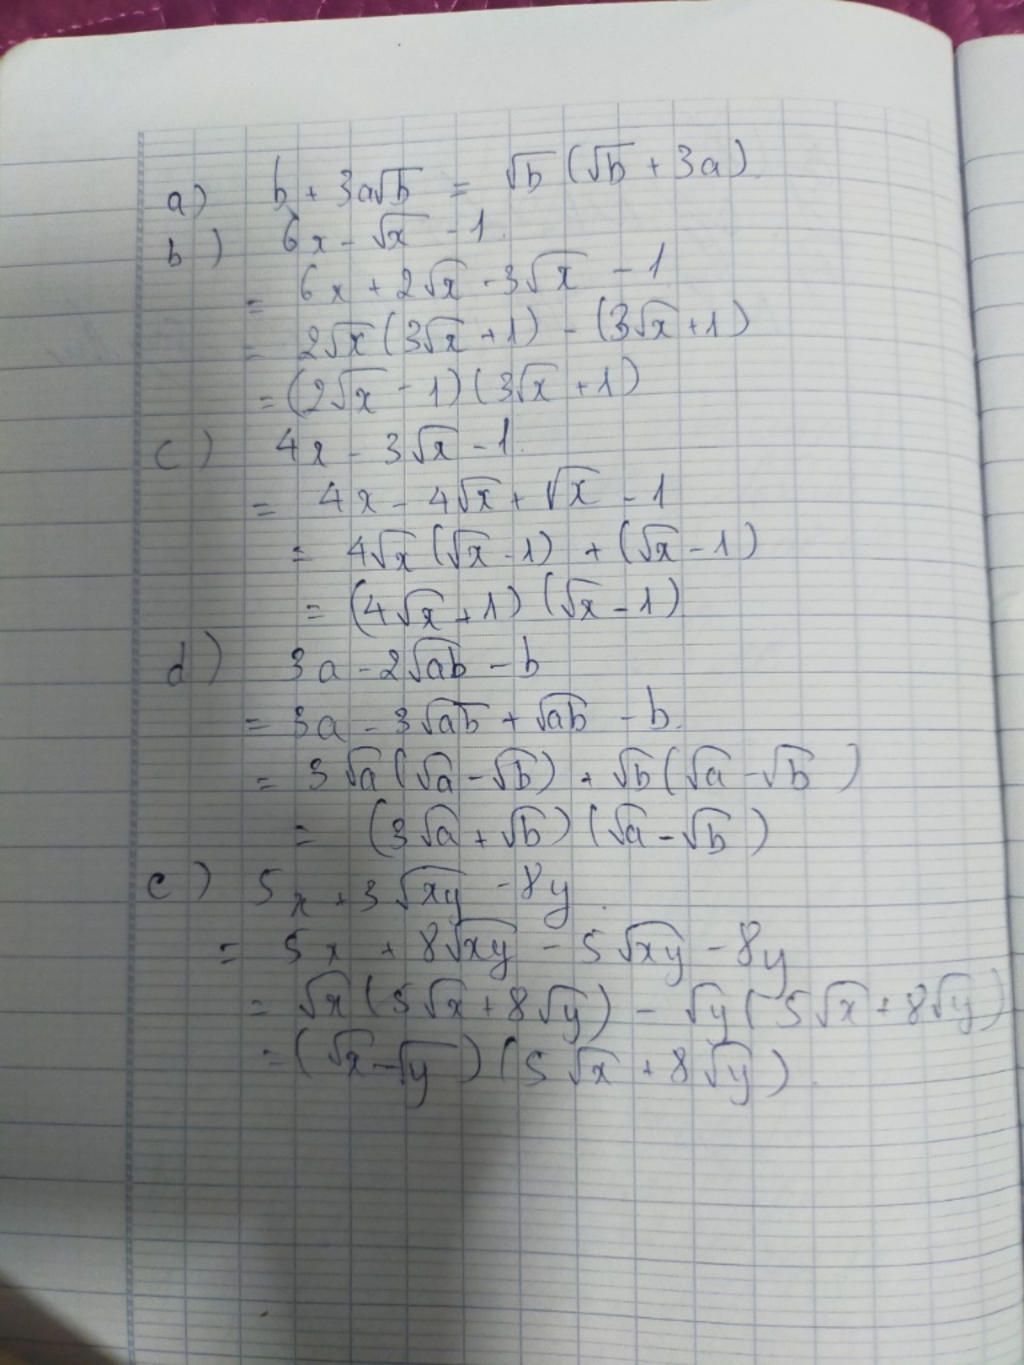 a) b + 3a√b = √b (√b + 3a).
b) 6x - √x - 1.
= 6x + 2√x - 3√x - 1
= 2√x (3√x + 1) - (3√x + 1)
= (2√x - 1) (3√x + 1)
c) 4x - 3√x - 1.
= 4x - 4√x + √x - 1
= 4√x (√x - 1) + (√x - 1)
= (4√x + 1) (√x - 1)
d) 3a - 2√ab - b
= 3a - 3√ab + √ab - b.
= 3√a (√a - √b) + √b (√a - √b)
= (3√a + √b) (√a - √b)
e) 5x + 3√xy - 8y.
= 5x + 8√xy - 5√xy - 8y
= √x (5√x + 8√y) - √y (5√x + 8√y)
= (√x - √y) (5√x + 8√y).